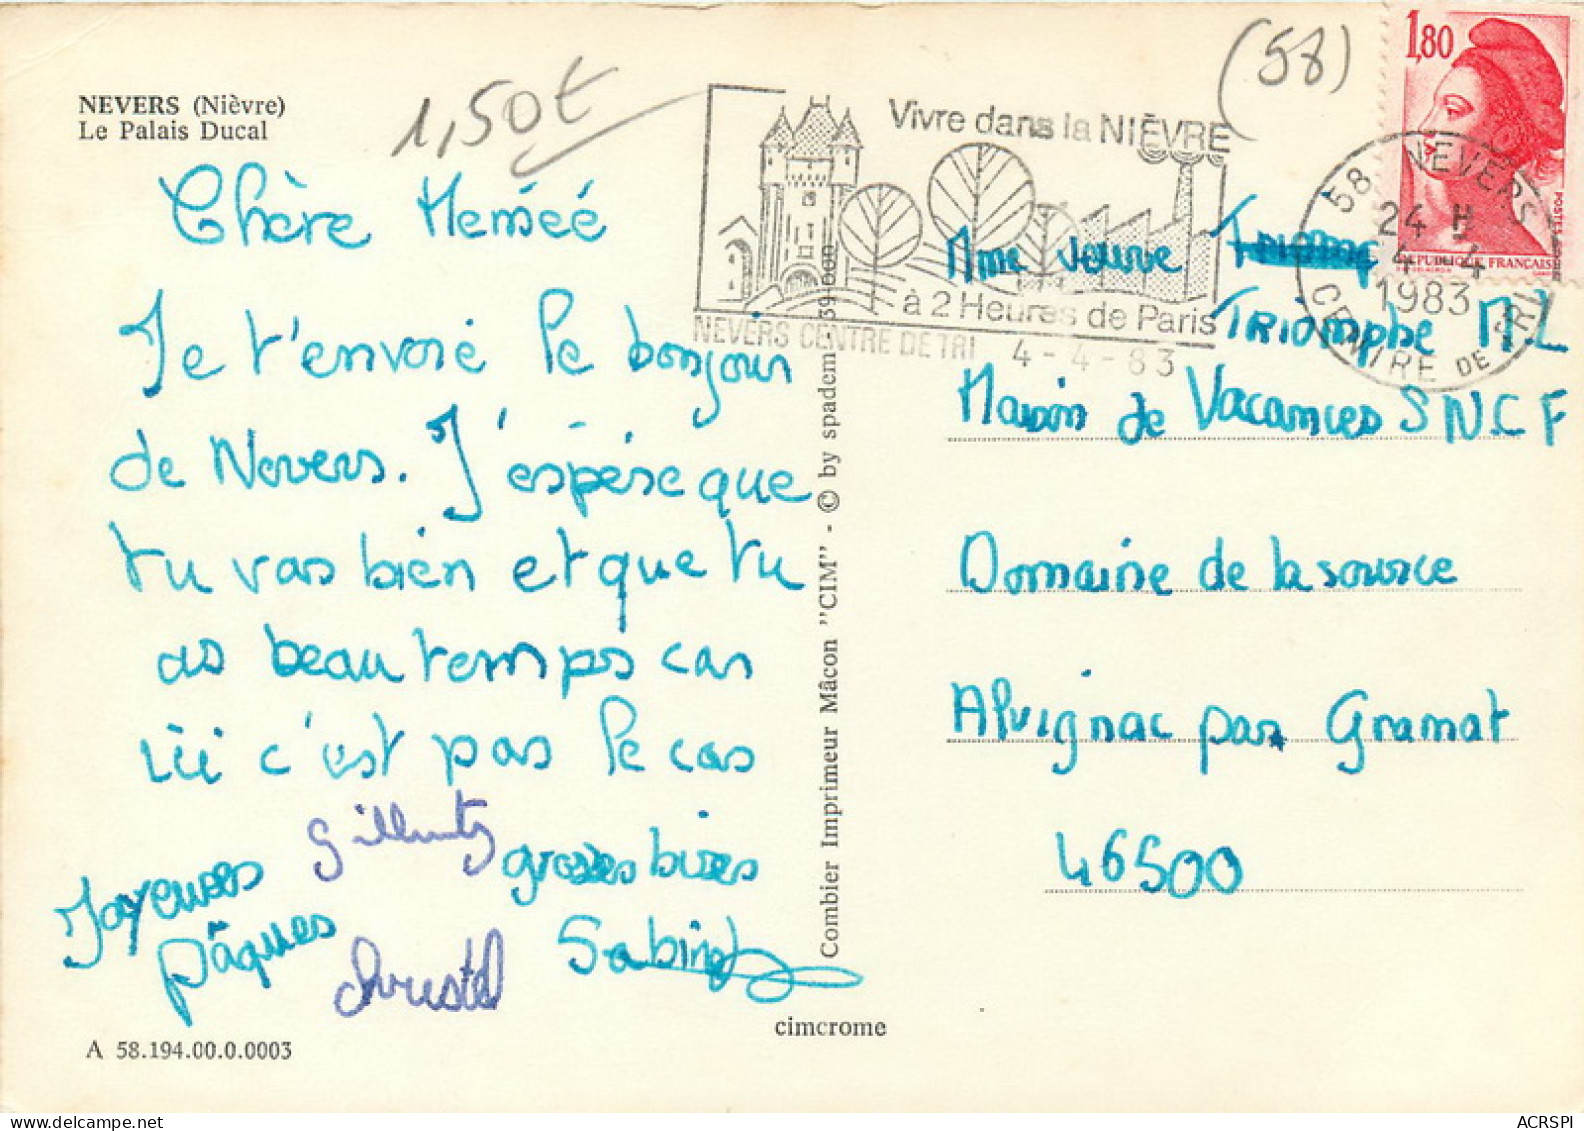 NEVERS (Nièvre)
Le Palais Ducal
1,50€
(58)
1,80
POSTES
REPUBLIQUE FRANCAISE
Vivre dans la NIÈVRE
à 2 Heures de Paris
NEVERS CENTRE DE TRI 4-4-83
58 NEVERS
24 H
4-4
1983
CENTRE DE TRI
Chère Meméé
Je t'envoie le bonjour
de Nevers. J'éspére que
tu vas bien et que tu
as beau temps car
ici c'est pas le cas
grosses bises
Joyeuses
pâques
Christel
Sabine
Mme veuve
Triomphe M.L
Maison de Vacances S.N.C.F
Domaine de la source
Alvignac par Gramat
46500
Combier Imprimeur Mâcon "CIM" - © by spadem 39-000
cimcrome
A 58.194.00.0.0003
ACRSPI